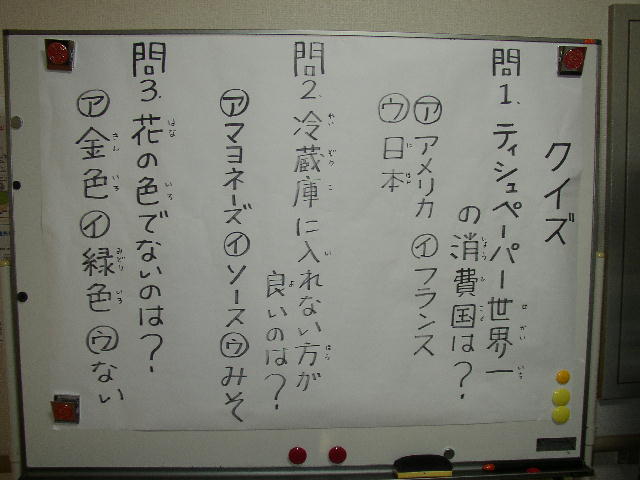 クイズ
問1.ティシュペーパー世界一
の消費国は?
㋐アメリカ ㋑フランス
㋒日本
問2.冷蔵庫に入れない方が
良いのは?
㋐マヨネーズ㋑ソース㋒みそ
問3.花の色でないのは?
㋐金色㋑緑色㋒ない